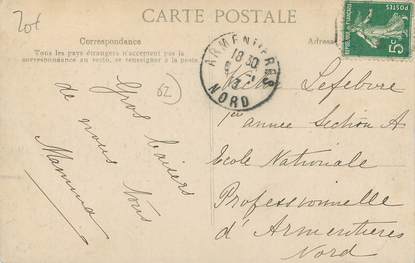 20€
CARTE POSTALE
Correspondance
Tous les pays étrangers n'acceptent pas la
correspondance au verso, se renseigner à la poste
Adresse
POSTES
5c
ARMENTIERES
18 30
13
NORD
62
Gros baisers
de nous tous
Mamma
Lefebvre
1ère année Section A
Ecole Nationale
Professionnelle
d'Armentières
Nord